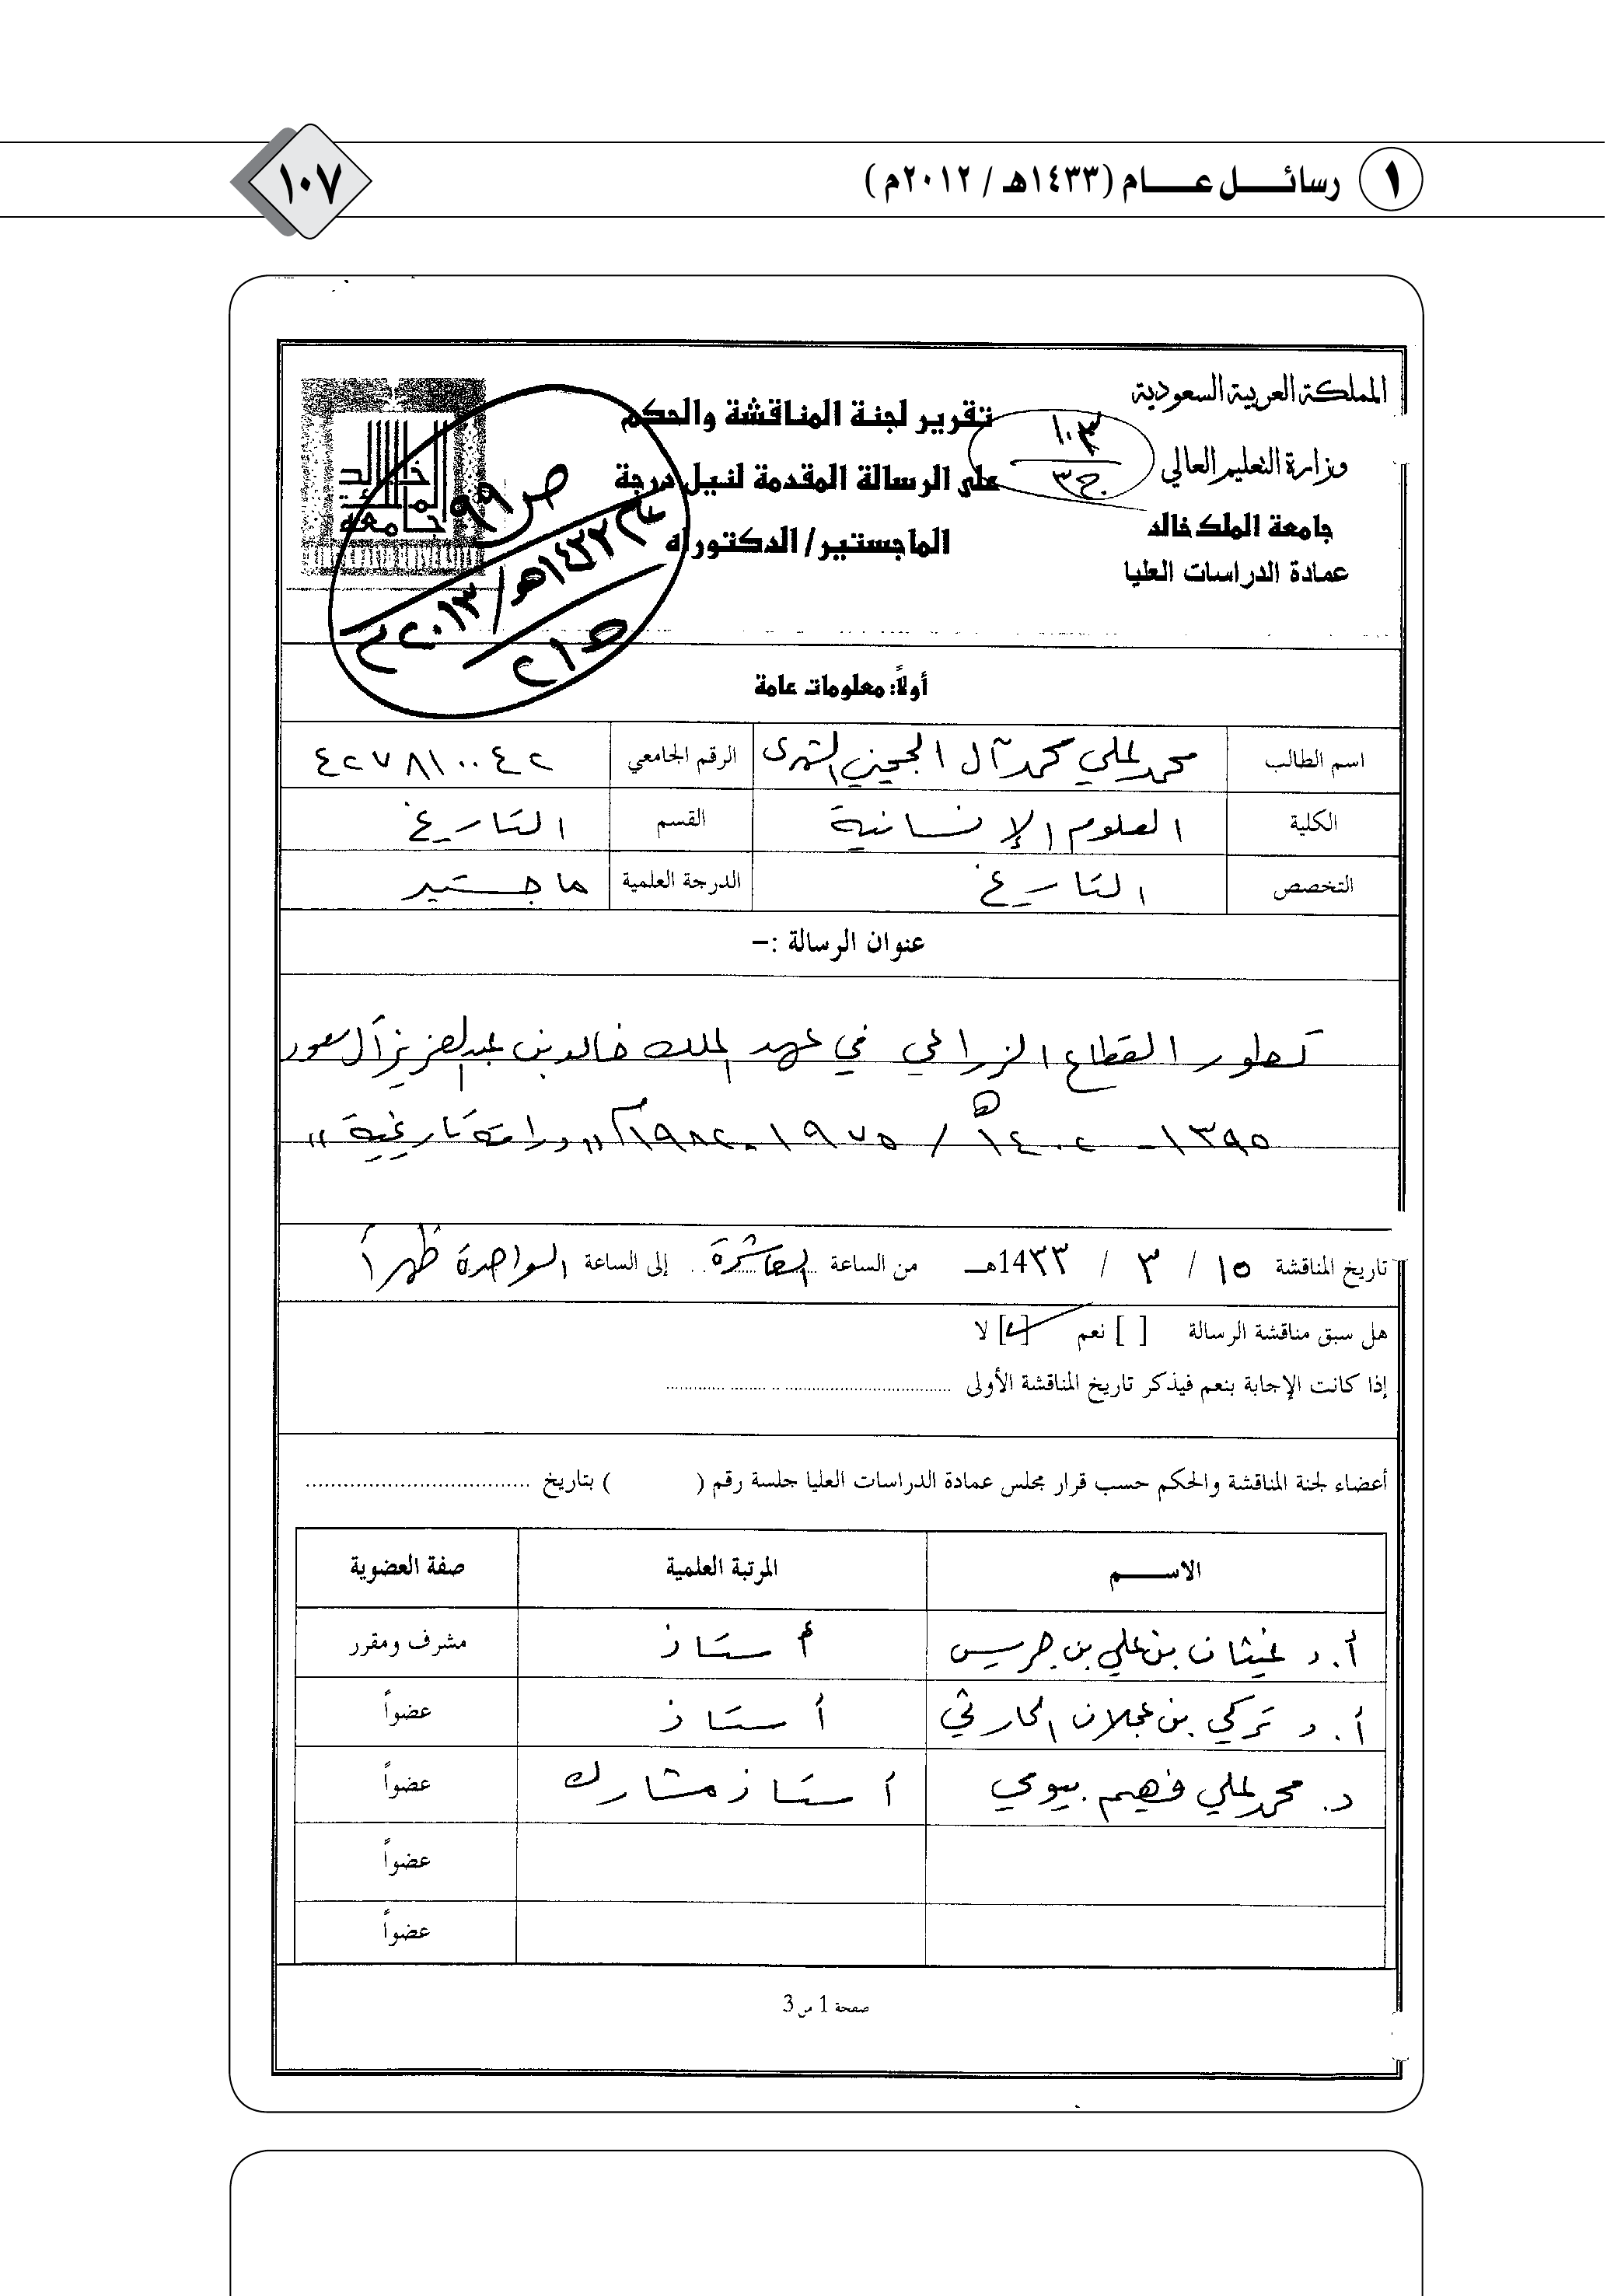 ١ رسائل عام (١٤٣٣هـ / ٢٠١٢م)
١٠٧
المملكة العربية السعودية
وزارة التعليم العالي
جامعة الملك خالد
عمادة الدراسات العليا
١٠٣
ج٣
تقرير لجنة المناقشة والحكم
على الرسالة المقدمة لنيل درجة
الماجستير/ الدكتوراه
جامعة الملك خالد
ص٩٩
أولاً: معلومات عامة
اسم الطالب محمد علي محمد آل الجحيني الشهري الرقم الجامعي ٤٢٧٨١٠٠٤٢
الكلية العلوم الإنسانية القسم التاريخ
التخصص التاريخ الدرجة العلمية ماجستير
عنوان الرسالة :-
تطور القطاع الزراعي في عهد الملك خالد بن عبدالعزيز آل سعود
١٣٩٥ - ١٤٠٢هـ / ١٩٧٥ - ١٩٨٢م "دراسة تاريخية"
تاريخ المناقشة ١٥ / ٣ / 14٣٣هـ من الساعة العاشرة إلى الساعة الواحدة ظهراً
هل سبق مناقشة الرسالة [ ] نعم [✓] لا
إذا كانت الإجابة بنعم فيذكر تاريخ المناقشة الأولى ..............................
أعضاء لجنة المناقشة والحكم حسب قرار مجلس عمادة الدراسات العليا جلسة رقم ( ) بتاريخ ..............................
الاسم المرتبة العلمية صفة العضوية
أ.د غيثان بن علي بن جريس أستاذ مشرف ومقرر
أ.د تركي بن عجلان الحارثي أستاذ عضواً
د. محمد علي فهيم بيومي أستاذ مشارك عضواً
عضواً
عضواً
صفحة 1 من 3